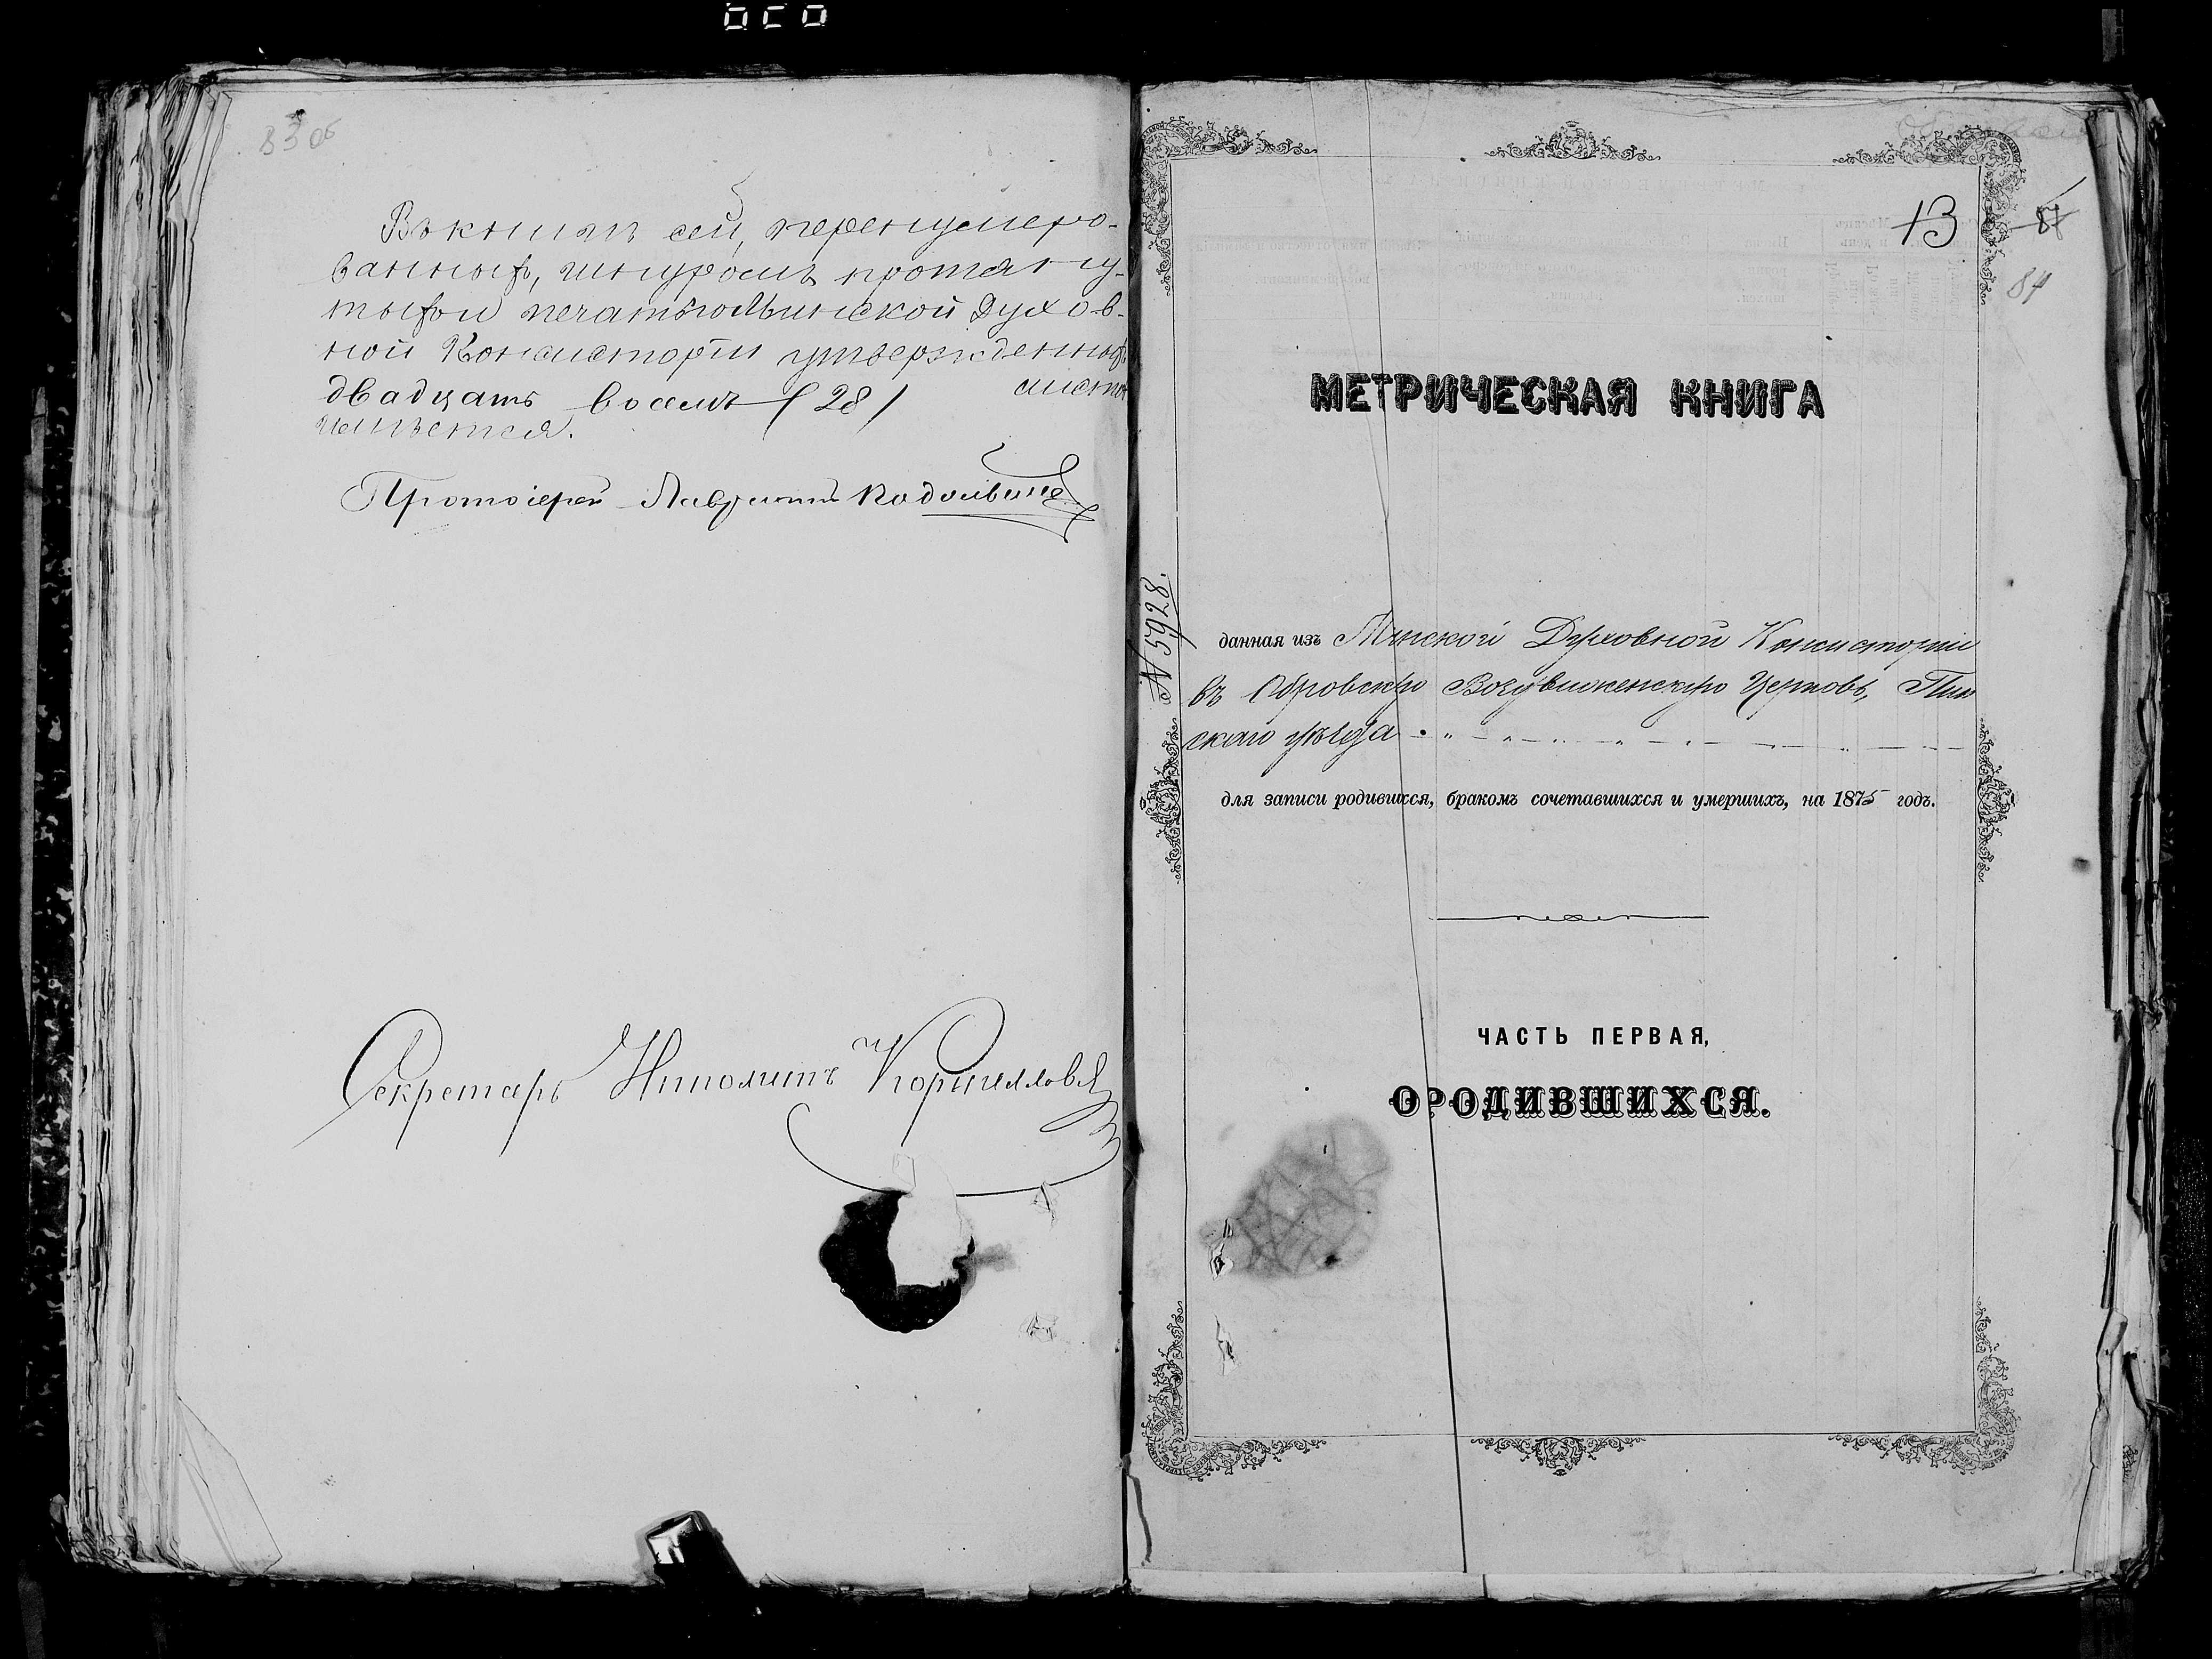 83 об
Въ книгѣ сей, перенумеро-
ванныхъ, шнуромъ протяну-
тыхъ и печатью Минской Духов-
ной Консисторіи утвержденныхъ
двадцать восемь (28) листовъ
числится.
Протоіерей Лаврентій
Секретарь Ипполитъ
13
84
МЕТРИЧЕСКАЯ КНИГА
№ 5928.
данная изъ Минской Духовной Консисторіи
въ Обровскую Воздвиженскую Церковь, Пин
скаго уѣзда
для записи родившихся, бракомъ сочетавшихся и умершихъ, на 1875 годъ.
ЧАСТЬ ПЕРВАЯ,
О РОДИВШИХСЯ.